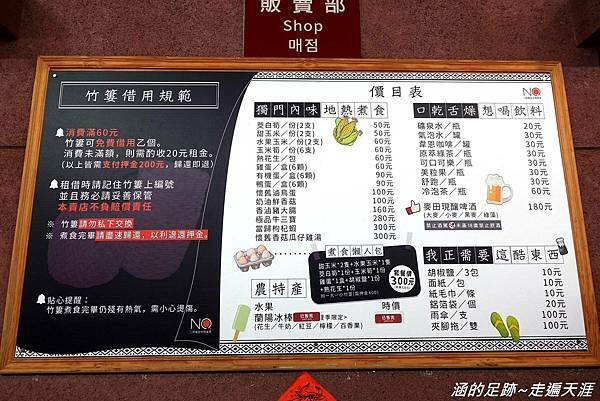 販賣部
Shop
매점
竹簍借用規範
消費滿60元
竹簍可免費借用乙個。
消費未滿額，則需酌收20元租金。
(以上皆需支付押金200元，歸還即退)
租借時請記住竹簍上編號
並且務必請妥善保管
本賣店不負賠償責任
※ 竹簍請勿私下交換
※ 煮食完畢請盡速歸還，以利退還押金。
貼心提醒：
竹簍煮食完畢仍殘有熱氣，需小心燙傷。
NO
價目表
NO
獨門內味地熱煮食
茭白筍／份(2支) 50元
甜玉米／份(2支) 50元
水果玉米／份(2支) 60元
玉米筍／份(6支) 60元
熟花生／包 60元
雞蛋／盒(6顆) 60元
有機蛋／盒(6顆) 90元
鴨蛋／盒(6顆) 90元
懷舊滷鳥蛋 100元
奶油鮮香菇 100元
香滷豬大腸 160元
極品牛三寶 280元
當歸枸杞蝦 300元
懷舊香菇瓜仔雞湯 300元
煮食懶人包
甜玉米*2隻+水果玉米*1隻
茭白筍*1份+玉米筍*1份
雞蛋*1盒+胡椒鹽*1份
+熟花生*1份
套餐價
300元
農特產
水果 時價
蘭陽冰棒 已售完
(花生／牛奶／紅豆／檸檬／百香果)
口乾舌燥想喝飲料
礦泉水／瓶 20元
氣泡水／瓶 30元
韋恩咖啡／罐 30元
原萃綠茶／瓶 30元
可口可樂／瓶 30元
美粒果／瓶 30元
舒跑／瓶 30元
冷泡茶／瓶 60元
麥田現釀啤酒 180元
(大麥／小麥／黑麥／綠藻)
禁止酒駕 未滿18歲禁止飲酒
我正需要這酷東西
胡椒鹽／3包 10元
面紙／包 10元
紙毛巾／條 10元
鋁箔袋／個 20元
雨傘／支 100元
夾腳拖／雙 100元
涵的足跡~走遍天涯